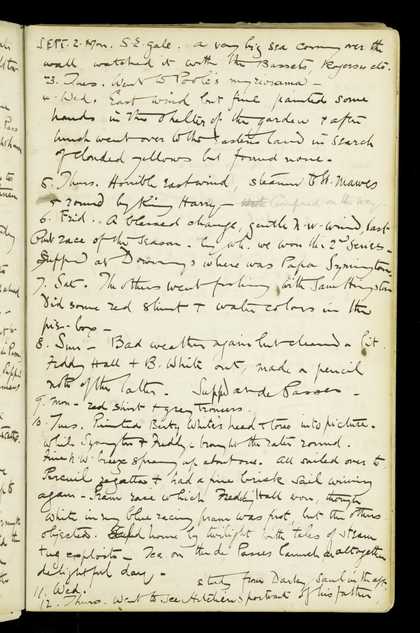 SEPT. 2. Mon. S.E. gale. a very big sea coming over the
wall watched it with the Bassets, Rogers etc.
3. Tues. Went to Poole's myriorama -
4. Wed. East wind but fine painted some
hands in the shelter of the garden & after
lunch went over to the eastern land in search
of clouded yellows but found none.
5. Thurs. Horrible east wind, steamer to St. Mawes
& round by King Harry - on the way
6. Frid. A blessed change, gentle N.W. wind, last
Punt race of the season. by wh. we won the 2nd series.
Supped at Downings where was Papa Symington
7. Sat. The others went fishing with Sam
Did some red shirt & water colors in the
pig-box -
8. Sun - Bad weather again but cleared a bit.
Freddy Hall & B. White out, made a pencil
note of the latter. Supped at de Passes -
9. Mon - red shirt & grey trousers.
10. Tues. Painted Berty White's head & torso into picture.
while Symington & Freddy brought the rater round.
Fine N.W. breeze sprang up about one. All sailed over to
Percuil regatta & had a fine brisk sail arriving
again - Pram race which Freddy Hall won, though
White in my blue racing pram was first, but the others
objected. home by twilight with tales of steam
tug exploits - Tea on the de Passes launch altogether
delightful day.
11. Wed. study from Darky, Saul in the
12. Thurs. Went to see portrait of his father